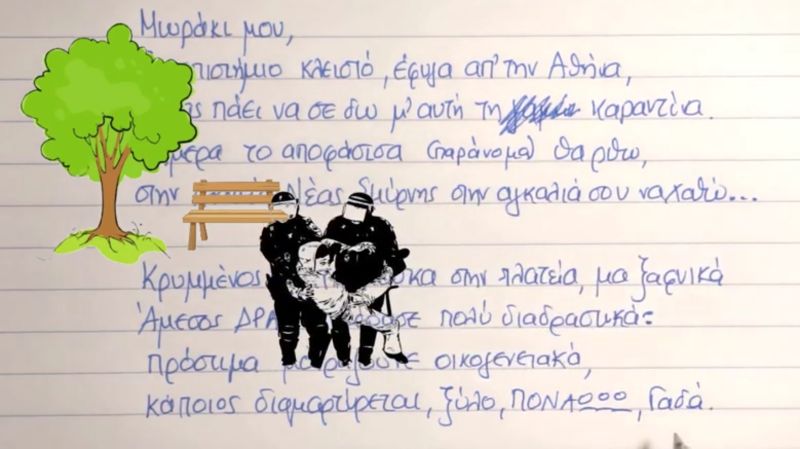 Μωράκι μου,
κλειστό, έφυγα απ' την Αθήνα,
πάει να σε δω μ' αυτή τη καραντίνα.
το αποφάσισα (παράνομα) θα ρθω,
στην Νέας Σμύρνης στην αγκαλιά σου να χαθώ...
Κρυμμένος στην πλατεία, μα ξαφνικά
Άμεσος πολύ διαδραστικά:
πρόστιμα οικογενειακά,
κάποιος διαμαρτύρεται, ξύλο, ΠΟΝΑΟΟΟ, Γαδά.